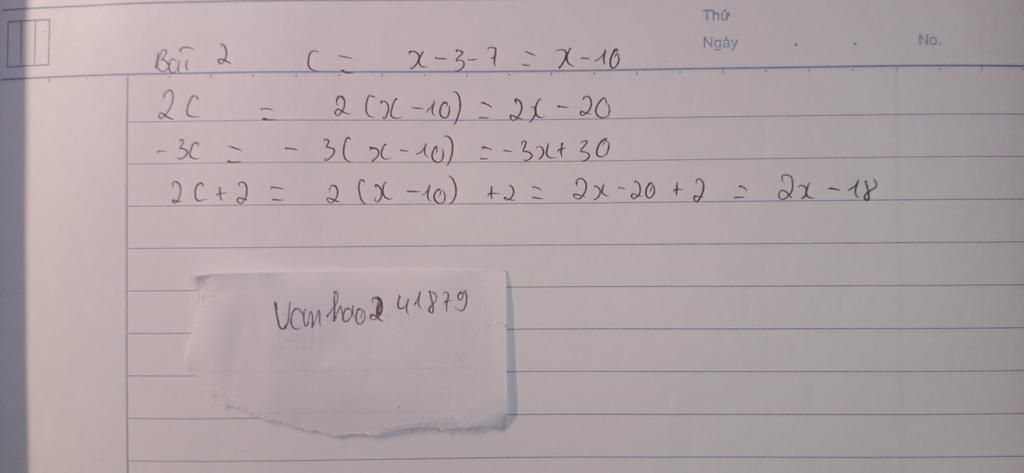 Thứ
Ngày . . No.
Bài 2 C = x - 3 - 7 = x - 10
2C = 2 (x - 10) = 2x - 20
- 3C = - 3( x - 10) = - 3x + 30
2C + 2 = 2 (x - 10) + 2 = 2x - 20 + 2 = 2x - 18
Vanhao2 41879